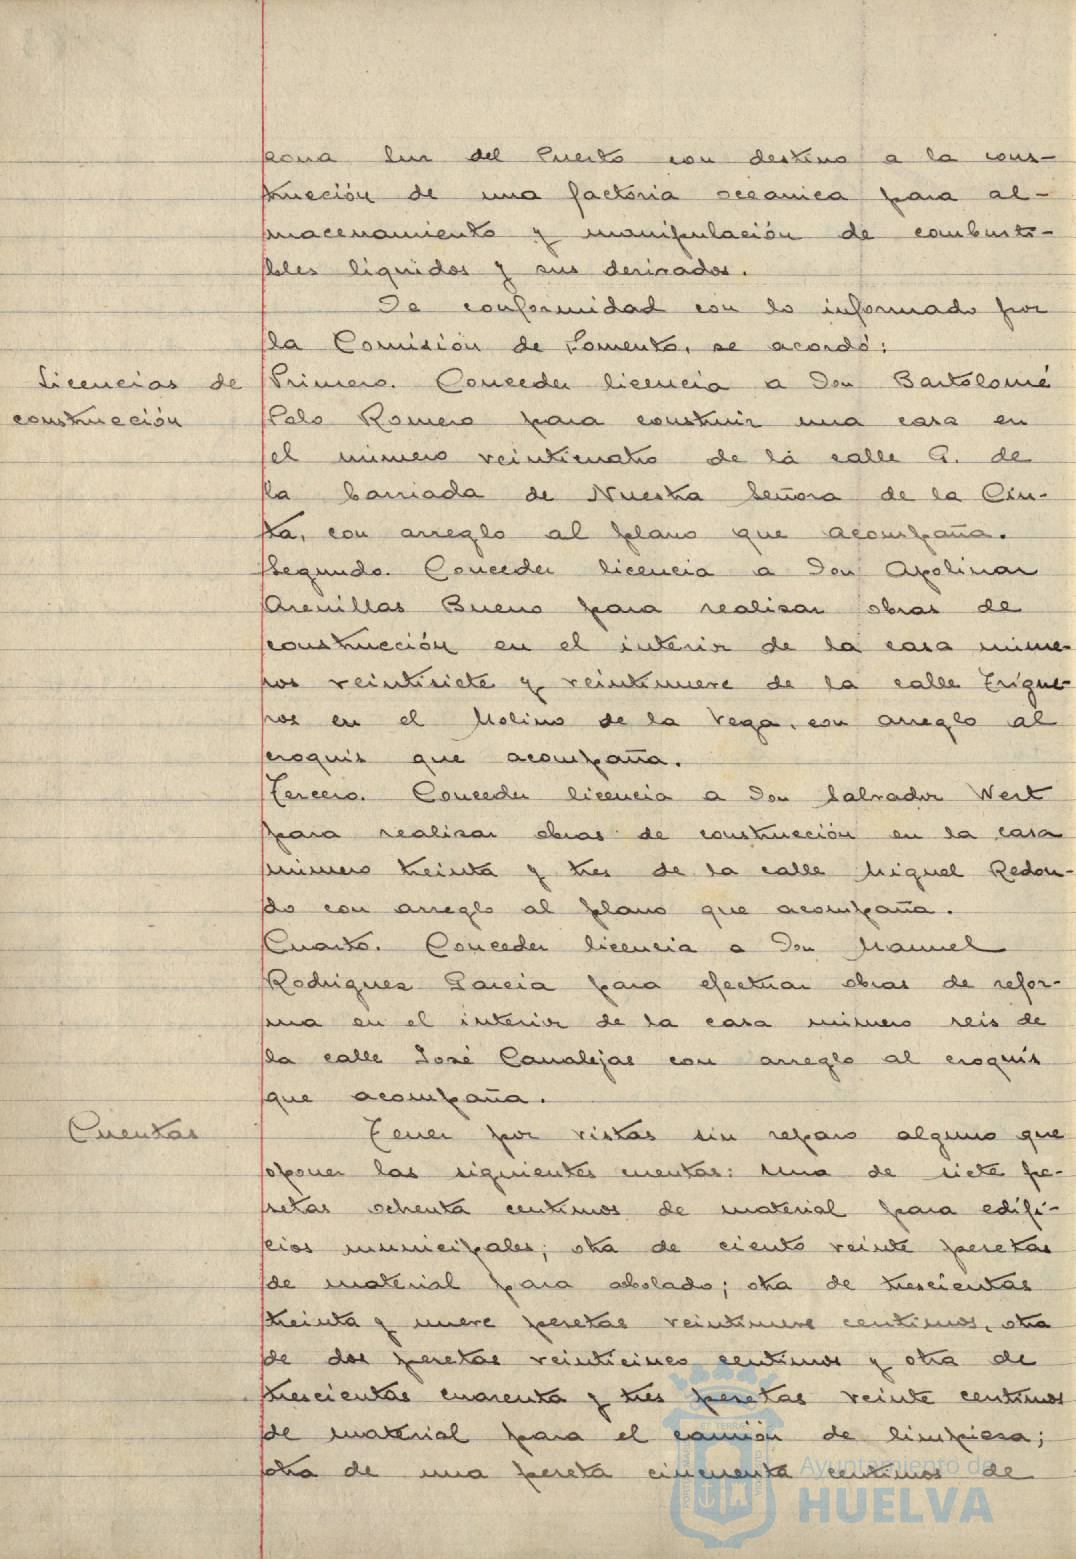 zona Sur del Puerto con destino a la cons-
trucción de una factoria oceanica para al-
macenamiento y manipulación de combusti-
bles liquidos y sus derivados.
De conformidad con lo informado por
la Comisión de Fomento, se acordó:
Licencias de
construcción
Primero. Conceder licencia a Don Bartolomé
Polo Romero para construir una casa en
el número veinticuatro de la calle G. de
la barriada de Nuestra Señora de la Cin-
ta, con arreglo al plano que acompaña.
Segundo. Conceder licencia a Don Apolinar
Arenillas Bueno para realizar obras de
construcción en el interior de la casa núme-
ros veintisiete y veintinueve de la calle Trigue-
ros en el Molino de la Vega, con arreglo al
croquis que acompaña.
Tercero. Conceder licencia a Don Salvador Wert
para realizar obras de construcción en la casa
número treinta y tres de la calle Miguel Redon-
do con arreglo al plano que acompaña.
Cuarto. Conceder licencia a Don Manuel
Rodriguez Garcia para efectuar obras de refor-
ma en el interior de la casa número seis de
la calle José Canalejas con arreglo al croquis
que acompaña.
Cuentas
Tener por vistas sin reparo alguno que
oponer las siguientes cuentas: una de siete pe-
setas ochenta centimos de material para edifi-
cios municipales; otra de ciento veinte pesetas
de material para adolado; otra de trescientas
treinta y nueve pesetas veintinueve centimos, otra
de dos pesetas veinticinco centimos y otra de
trescientas cuarenta y tres pesetas veinte centimos
de material para el camión de limpieza;
otra de una peseta cincuenta centimos de
Ayuntamiento de
HUELVA